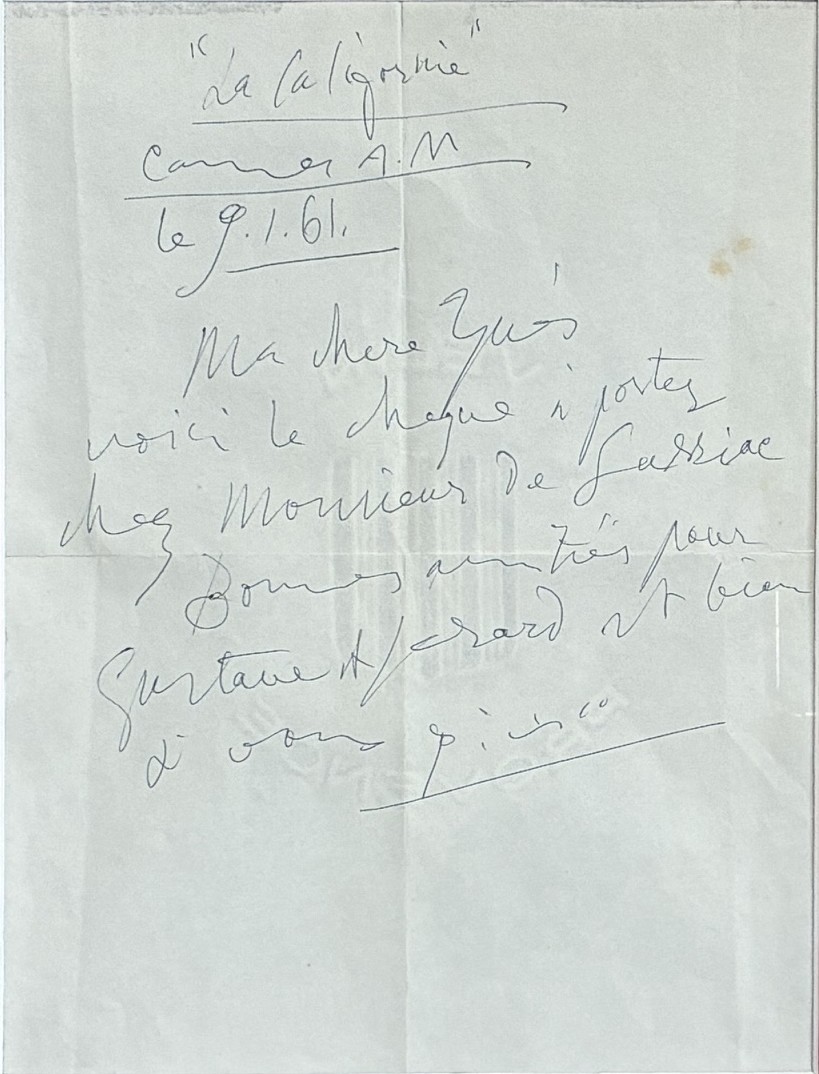 "La Californie"
Cannes A.M
le 9.1.61.
Ma chere Ynès
voici le cheque à porter
chez Monsieur De Sarriac
Bonnes amitiés pour
Gustave et Gerard et bien
à vous Picasso